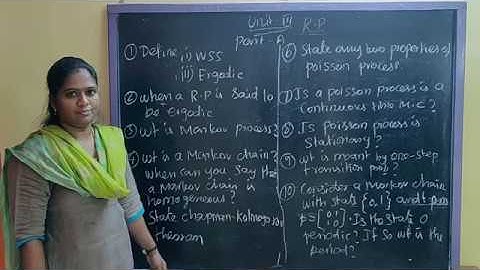 Unit III R.P
Part-A
① Define i) WSS
ii) Ergodic
② when a R.P is said to
be ergodic
③ wt is Markov process?
④ wt is a Markov chain?
when can you say the
a Markov chain is
homogeneous?
State chapman-kolmogorov
theorem
⑥ State any two properties of
poisson process
⑦ Is a poisson process is a
continuous time M.C?
⑧ Is poisson process is
stationary?
⑨ wt is meant by one-step
transition prob?
⑩ Consider a Markov chain
with state {0,1} and
P= [0 1 1 0]. Is the state 0
periodic? If so wt is the
period?